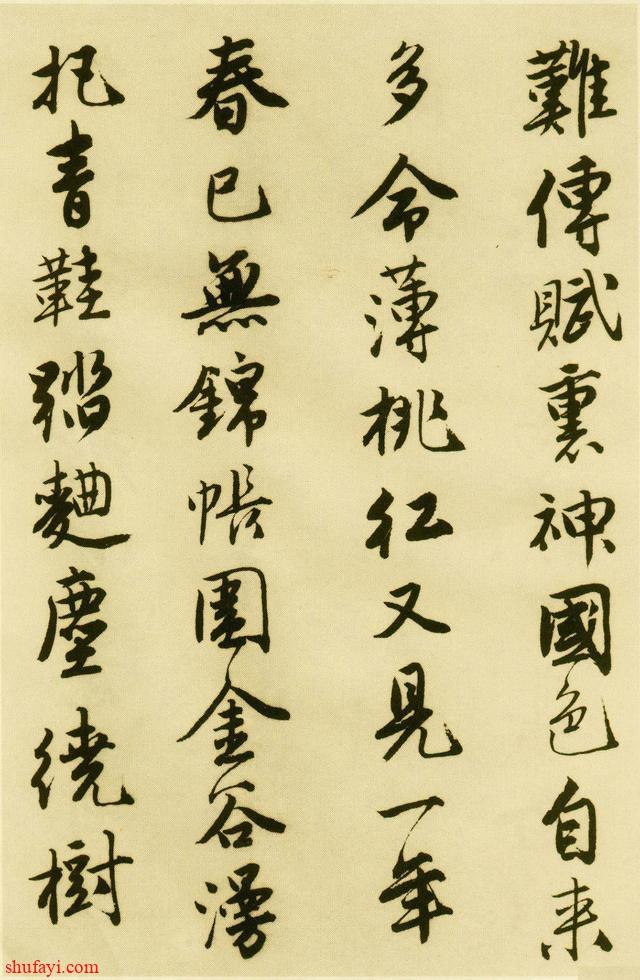 難傳賦裏神國色自來
多命薄桃紅又見一年
春已無錦帳圍金谷漫
把青鞋踏麯塵繞樹
shufayi.com